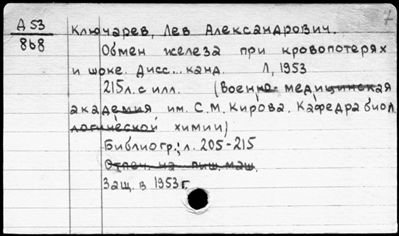 7
А 53
868
Ключарев, Лев Александрович.
Обмен железа при кровопотерях
и шоке. Дисс... канд. Л, 1953
215 л. с илл. (Военно-медицинская
академия им. С.М. Кирова. Кафедра биол
логической химии)
Библиогр.: л. 205-215
Отпеч. на пиш. маш.
Защ. в 1953 г.